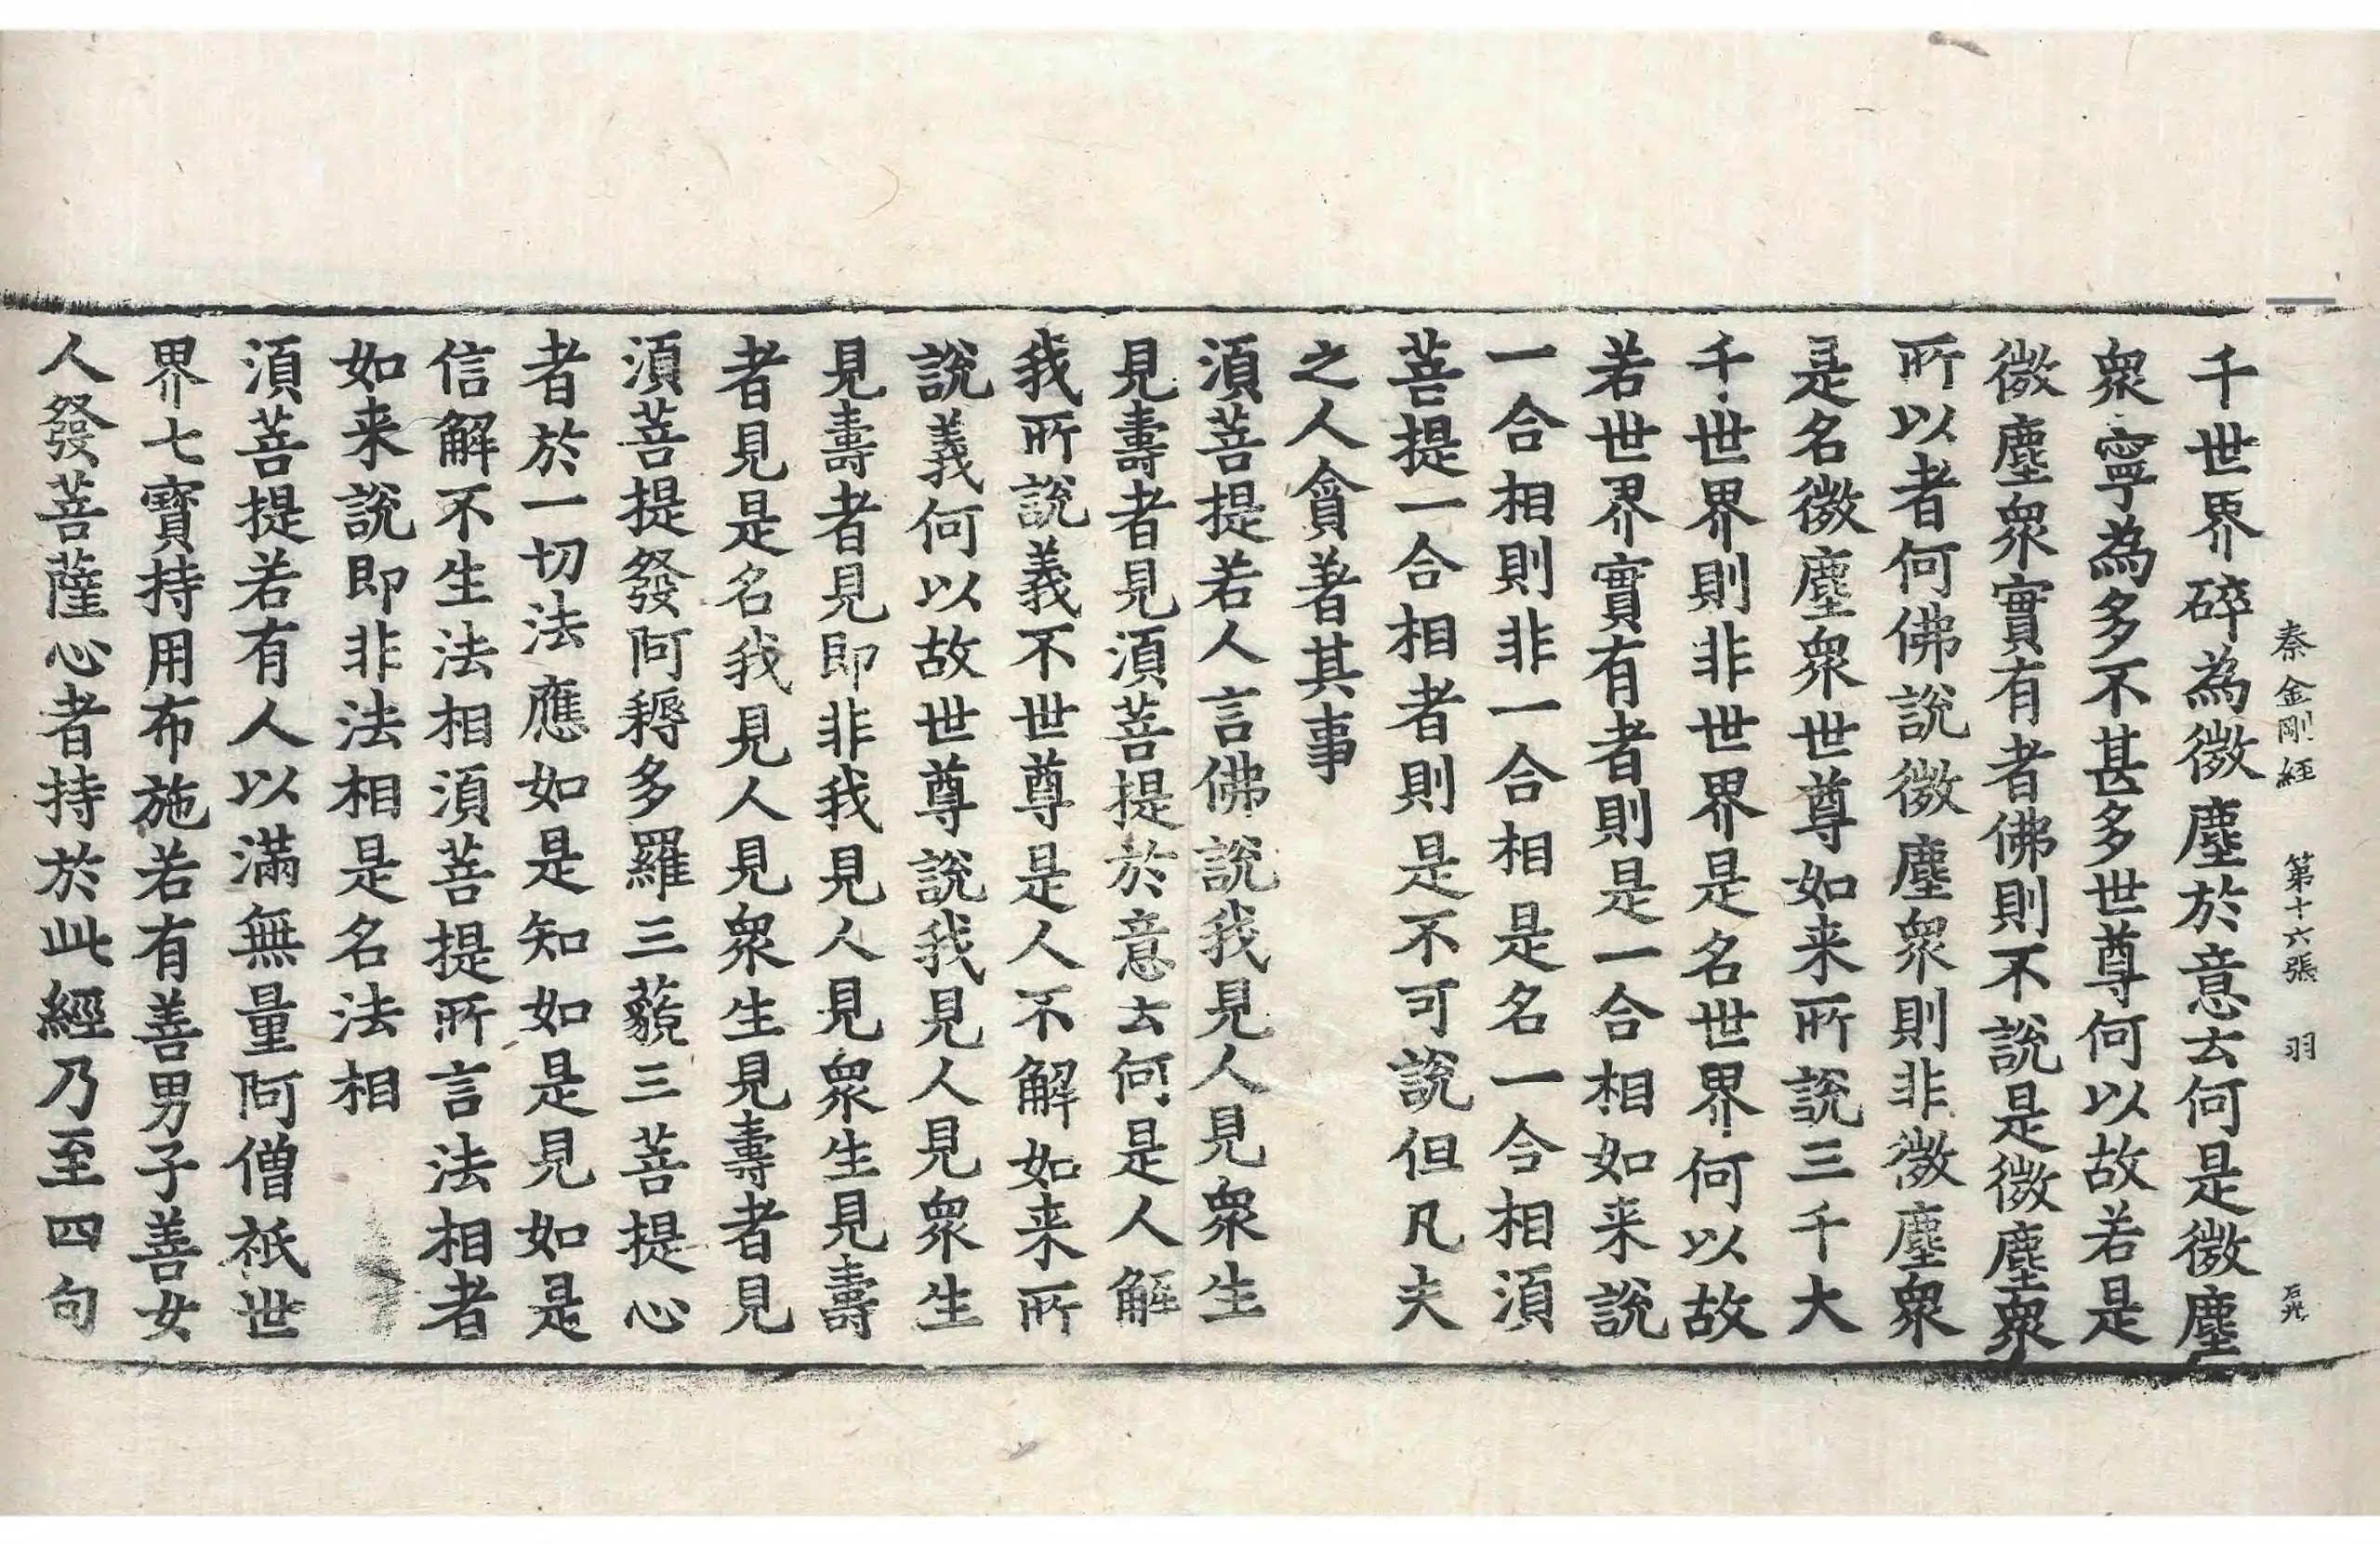 秦金剛経 第十六張 羽
千世界碎為微塵於意云何是微塵
衆寧為多不甚多世尊何以故若是
微塵衆實有者佛則不說是微塵衆
所以者何佛說微塵衆則非微塵衆
是名微塵衆世尊如来所說三千大
千世界則非世界是名世界何以故
若世界實有者則是一合相如来說
一合相則非一合相是名一合相須
菩提一合相者則是不可說但凡夫
之人貪著其事
須菩提若人言佛說我見人見衆生
見壽者見須菩提於意云何是人解
我所說義不世尊是人不解如来所
說義何以故世尊說我見人見衆生
見壽者見即非我見人見衆生見壽
者見是名我見人見衆生見壽者見
須菩提發阿耨多羅三藐三菩提心
者於一切法應如是知如是見如是
信解不生法相須菩提所言法相者
如来說即非法相是名法相
須菩提若有人以滿無量阿僧祇世
界七寶持用布施若有善男子善女
人發菩薩心者持於此經乃至四句